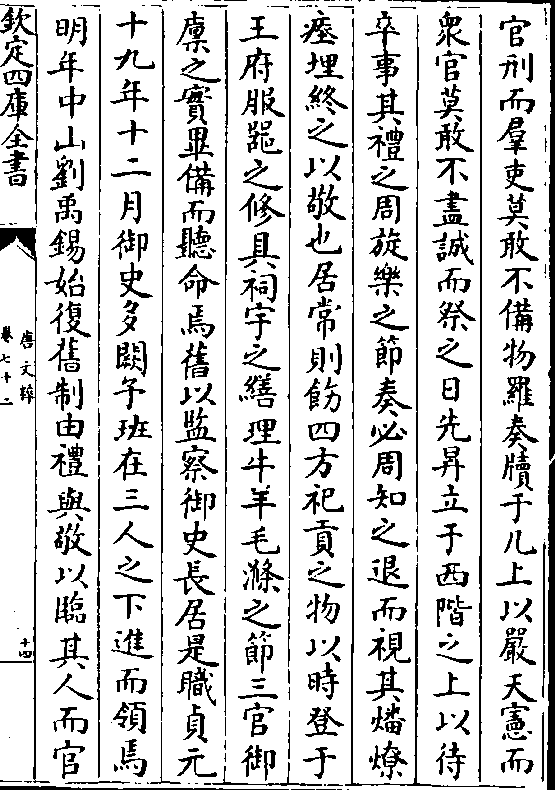 官刑而羣吏莫敢不備物羅奏牘于几上以嚴天憲而
衆官莫敢不盡誠而祭之日先昇立于西階之上以待
卒事其禮之周旋樂之節奏必周知之退而視其燔燎
瘞埋終之以敬也居常則飭四方祀貢之物以時登于
王府服器之修具祠宇之繕理牛羊毛滌之節三官御
廩之實畢備而聽命焉舊以監察御史長居是職貞元
十九年十二月御史多闕予班在三人之下進而領焉
明年中山劉禹錫始復舊制由禮與敬以臨其人而官
欽定四庫全書
唐文粹
卷七十二
十四